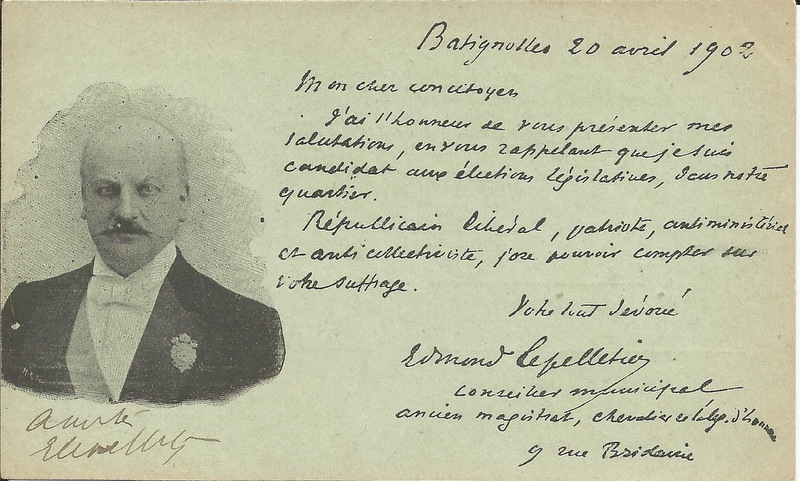 Batignolles 20 avril 1902
Mon cher concitoyen
J'ai l'honneur de vous présenter mes
salutations, en vous rappelant que je suis
candidat aux élections législatives, dans notre
quartier.
Républicain libéral, patriote, antiministériel
et anticollectiviste, j'ose pouvoir compter sur
votre suffrage.
Votre tout dévoué
Edmond Lepelletier
conseiller municipal
ancien magistrat, chevalier de la lég. d'honneur
9 rue Bridaine